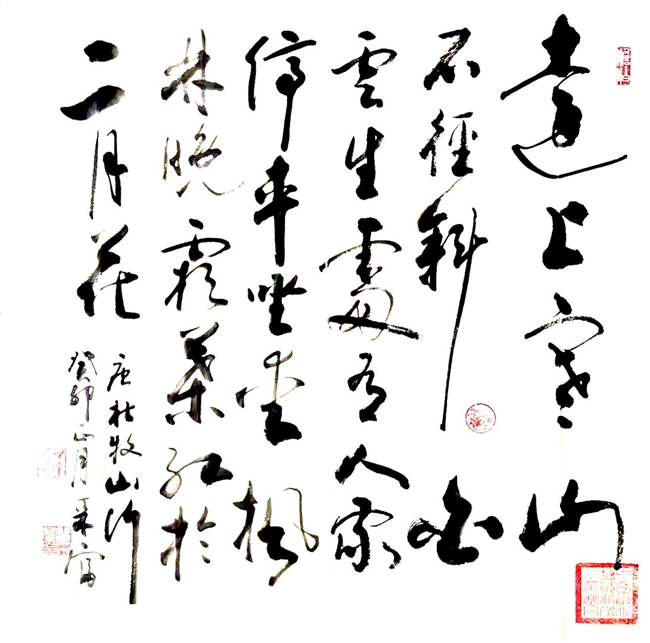 遠上寒山
石徑斜白
雲生處有人家
停車坐愛楓
林晚霜葉紅於
二月花
唐杜牧山行
癸卯正月